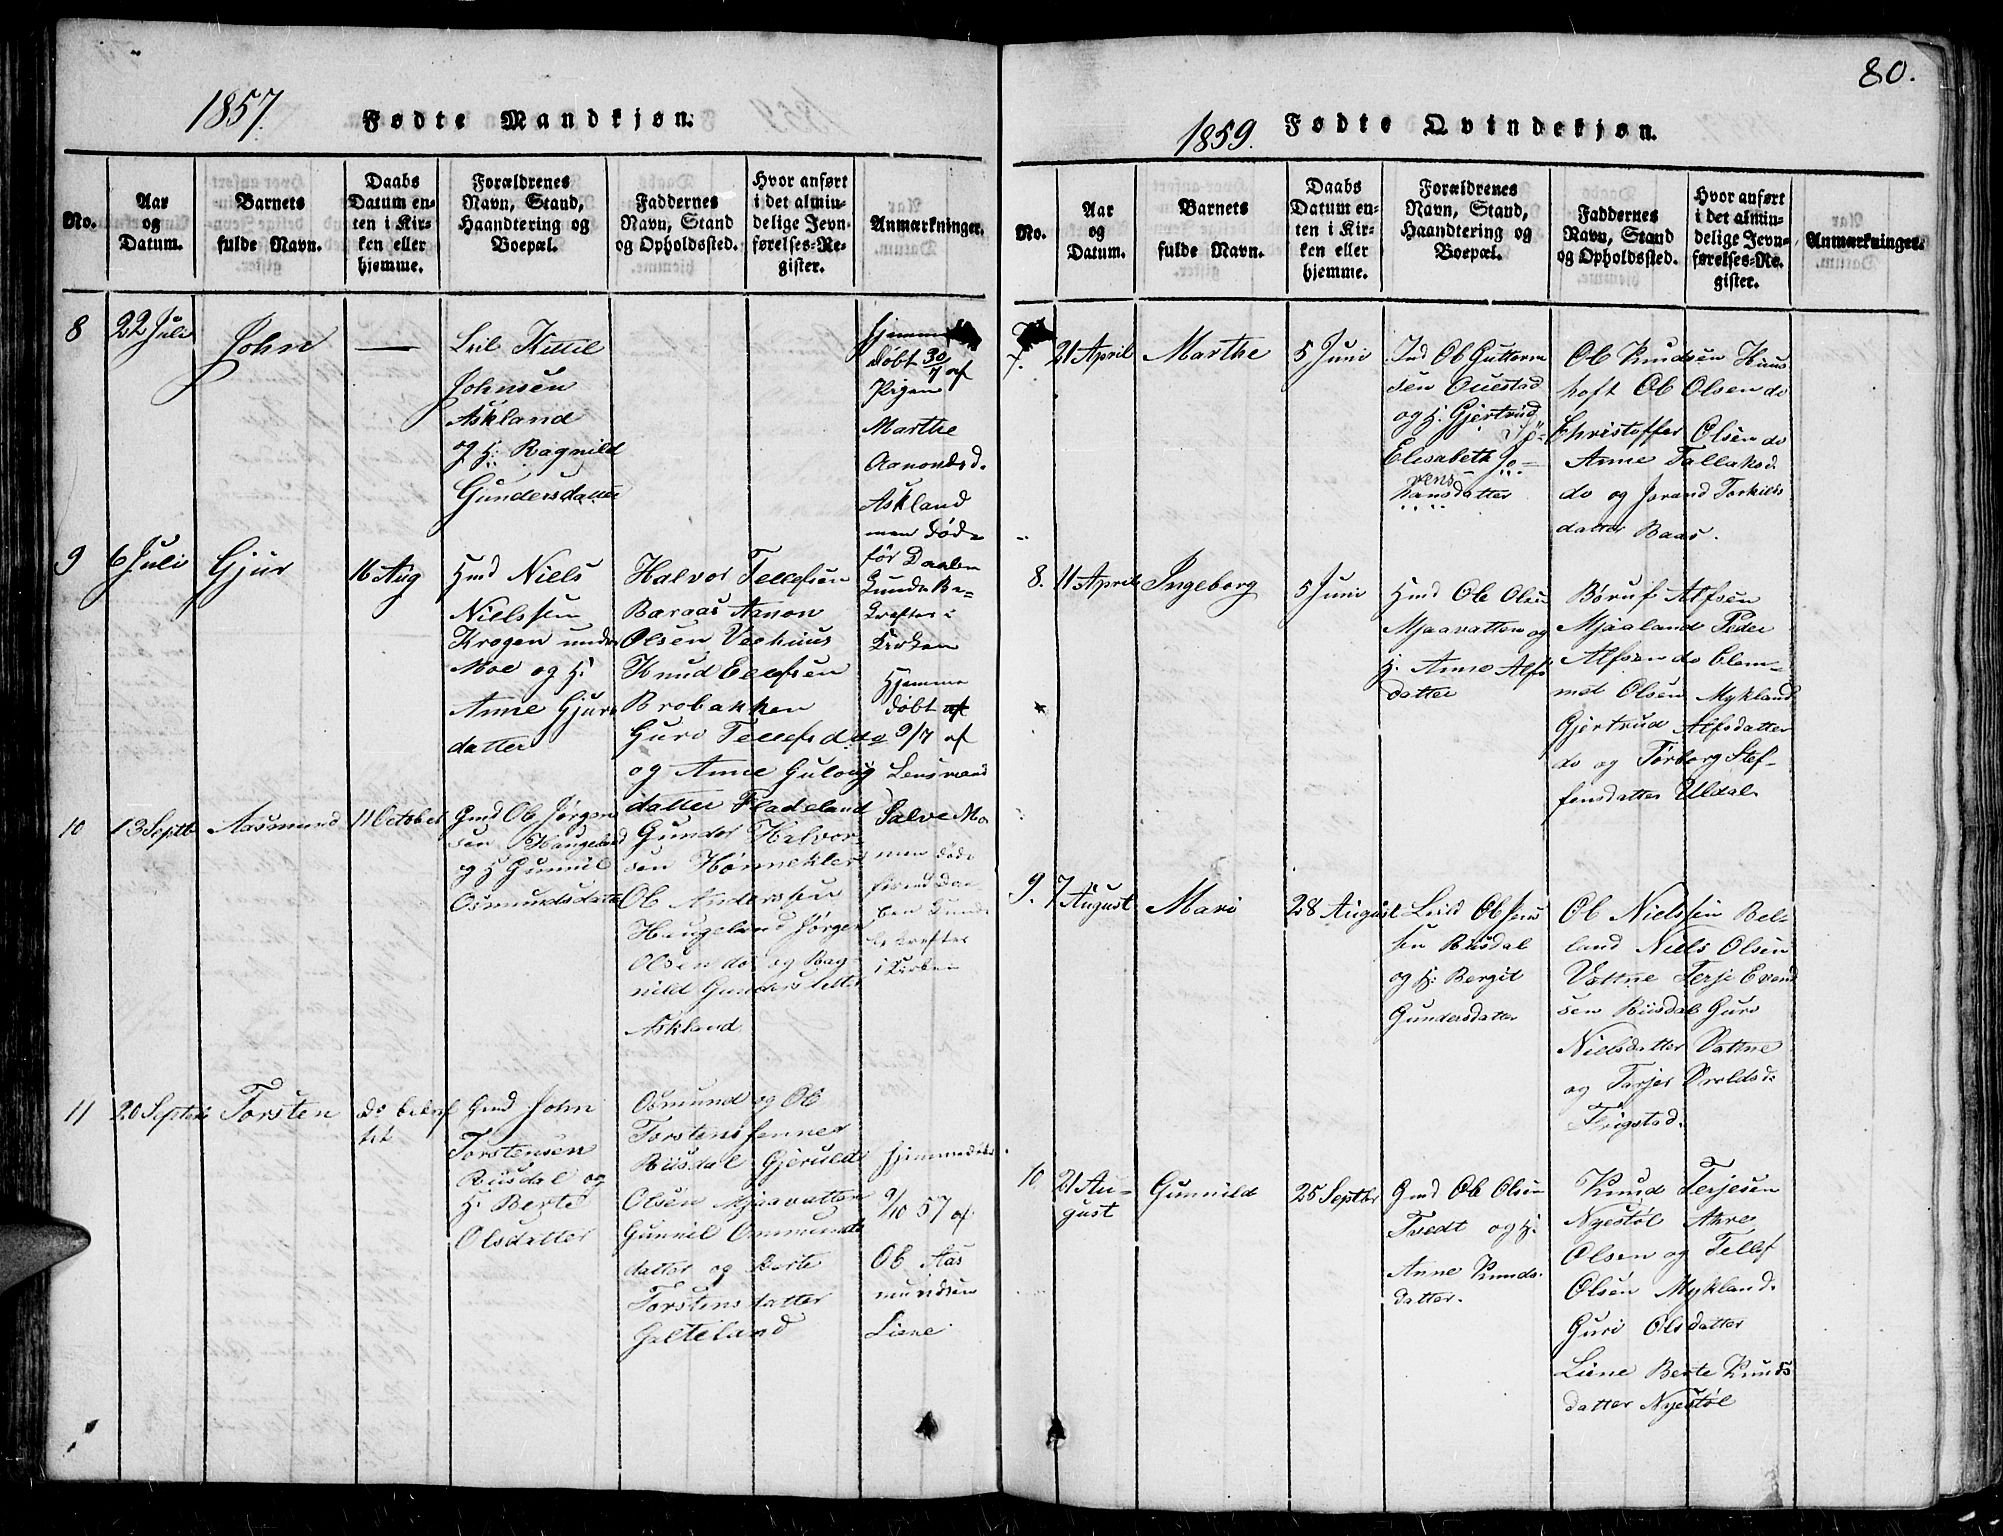 80.
1857.
Fødte Mandkjøn.
No.
Aar
og
Datum.
Barnets
fulde Navn.
Daabs
Datum en-
ten i Kir-
ken eller
hjemme.
Forældrenes
Navn, Stand,
Haandtering og
Boepæl.
Faddernes
Navn, Stand
og Opholdssted.
Hvor anført
i det almin-
delige Jevn-
førelses-Re-
gister.
Anmærkninger.
8
22 Juli
John
—
Kittil
Johnsen
Askland
og H. Ragnild
Gundersdatter
døbt 30/7 af
Pigen
Marthe
Aanondsd.
Askland
men døde
før Daaben
Kunde Be-
kræftes i
Kirken
9
6 Juli
Gjur
16 Aug
Hmd Niels
Nielssen
Krogen under
Moe og H.
Anne Gjurs
datter
Halvor Tellefsen
Baraas Aanon
Olsen Veehuus
Knud Eelefsen
Brobakken
Guri Tellefsd do
og Anne Gulovs
datter Fladeland
Hjemme
døbt af
9/7 af
Lensmand
Salve Mo
men døde
førend Daa-
ben Kunde
bekræftes
i Kirken
10
13 Septb
Aasmund
11 October
Gmd Ole Jørgen
sen Haugeland
og H Gunnil
Osmundsdatter
Gunder Halvor-
sen Hønnekleiv
Ole Anderssen
Haugeland Jørgen
Olsen do og Rag-
nild Gundersdatter
Askland
11
20 Septbr
Torsten
do bekræf
tet
Gmd John
Torstensen
Risdal og
H. Berte
Olsdatter
Osmund og Ole
Torstenssønner
Risdal Gjeruld
Olsen Mjaavatten
Gunnil Ommunds
datter og Berte
Torstensdatter
Galteland
Hjemmedøbt
9/10 57 af
Ole Aas
mundsen
Liene
1859.
Fødte Qvindekjøn.
No.
Aar
og
Datum.
Barnets
fulde Navn.
Daabs
Datum en-
ten i Kir-
ken eller
hjemme.
Forældrenes
Navn, Stand,
Haandtering og
Boepæl.
Faddernes
Navn, Stand
og Opholdssted.
Hvor anført
i det almin-
delige Jevn-
førelses-Re-
gister.
Anmærkninger.
7.
21 April
Marthe
5 Juni
Ind Ole Guttorm
sen Ouestad
og H. Gjertrud
Elisabeth Jo-
hansdatter
Ole Knudsen Huus
toft Ole Olsen do
Christoffer Olsen do
Anne Tallaksd.
do og Jorand Torkilds
datter Baas.
8.
11 April
Ingeborg
5 Juni
Hmd Ole Olsen
Mjaavatten og
H. Anne Alfs
datter
Børuf Alfsen
Mjaaland Peder
Alfsen do Clem-
met Olsen Mykland
Gjertrud Alfsdatter
do og Tørborg Stef-
fensdatter Uldal.
9.
7
August
Mari
28 August
Ole Jens
sen Risdal
og H. Bergit
Gundersdatter
Ole Nielssen Bel-
land Niels Olsen
Vattne Terje Evend
sen Risdal Guro
Nielsdatter Vattne
og Tarjer Oroldsd.
Frigstad.
10
21 Au-
gust
Gunnild
25 Septbr
Gmd Ole Olsen
Tvedt og H.
Anne Knuds-
datter.
Knud Terjesen
Nyestøl Ahre
Olsen og Tellef
Olsen Mykland.
Guri Olsdatter
Liene Berte Knuds
datter Nyestøl